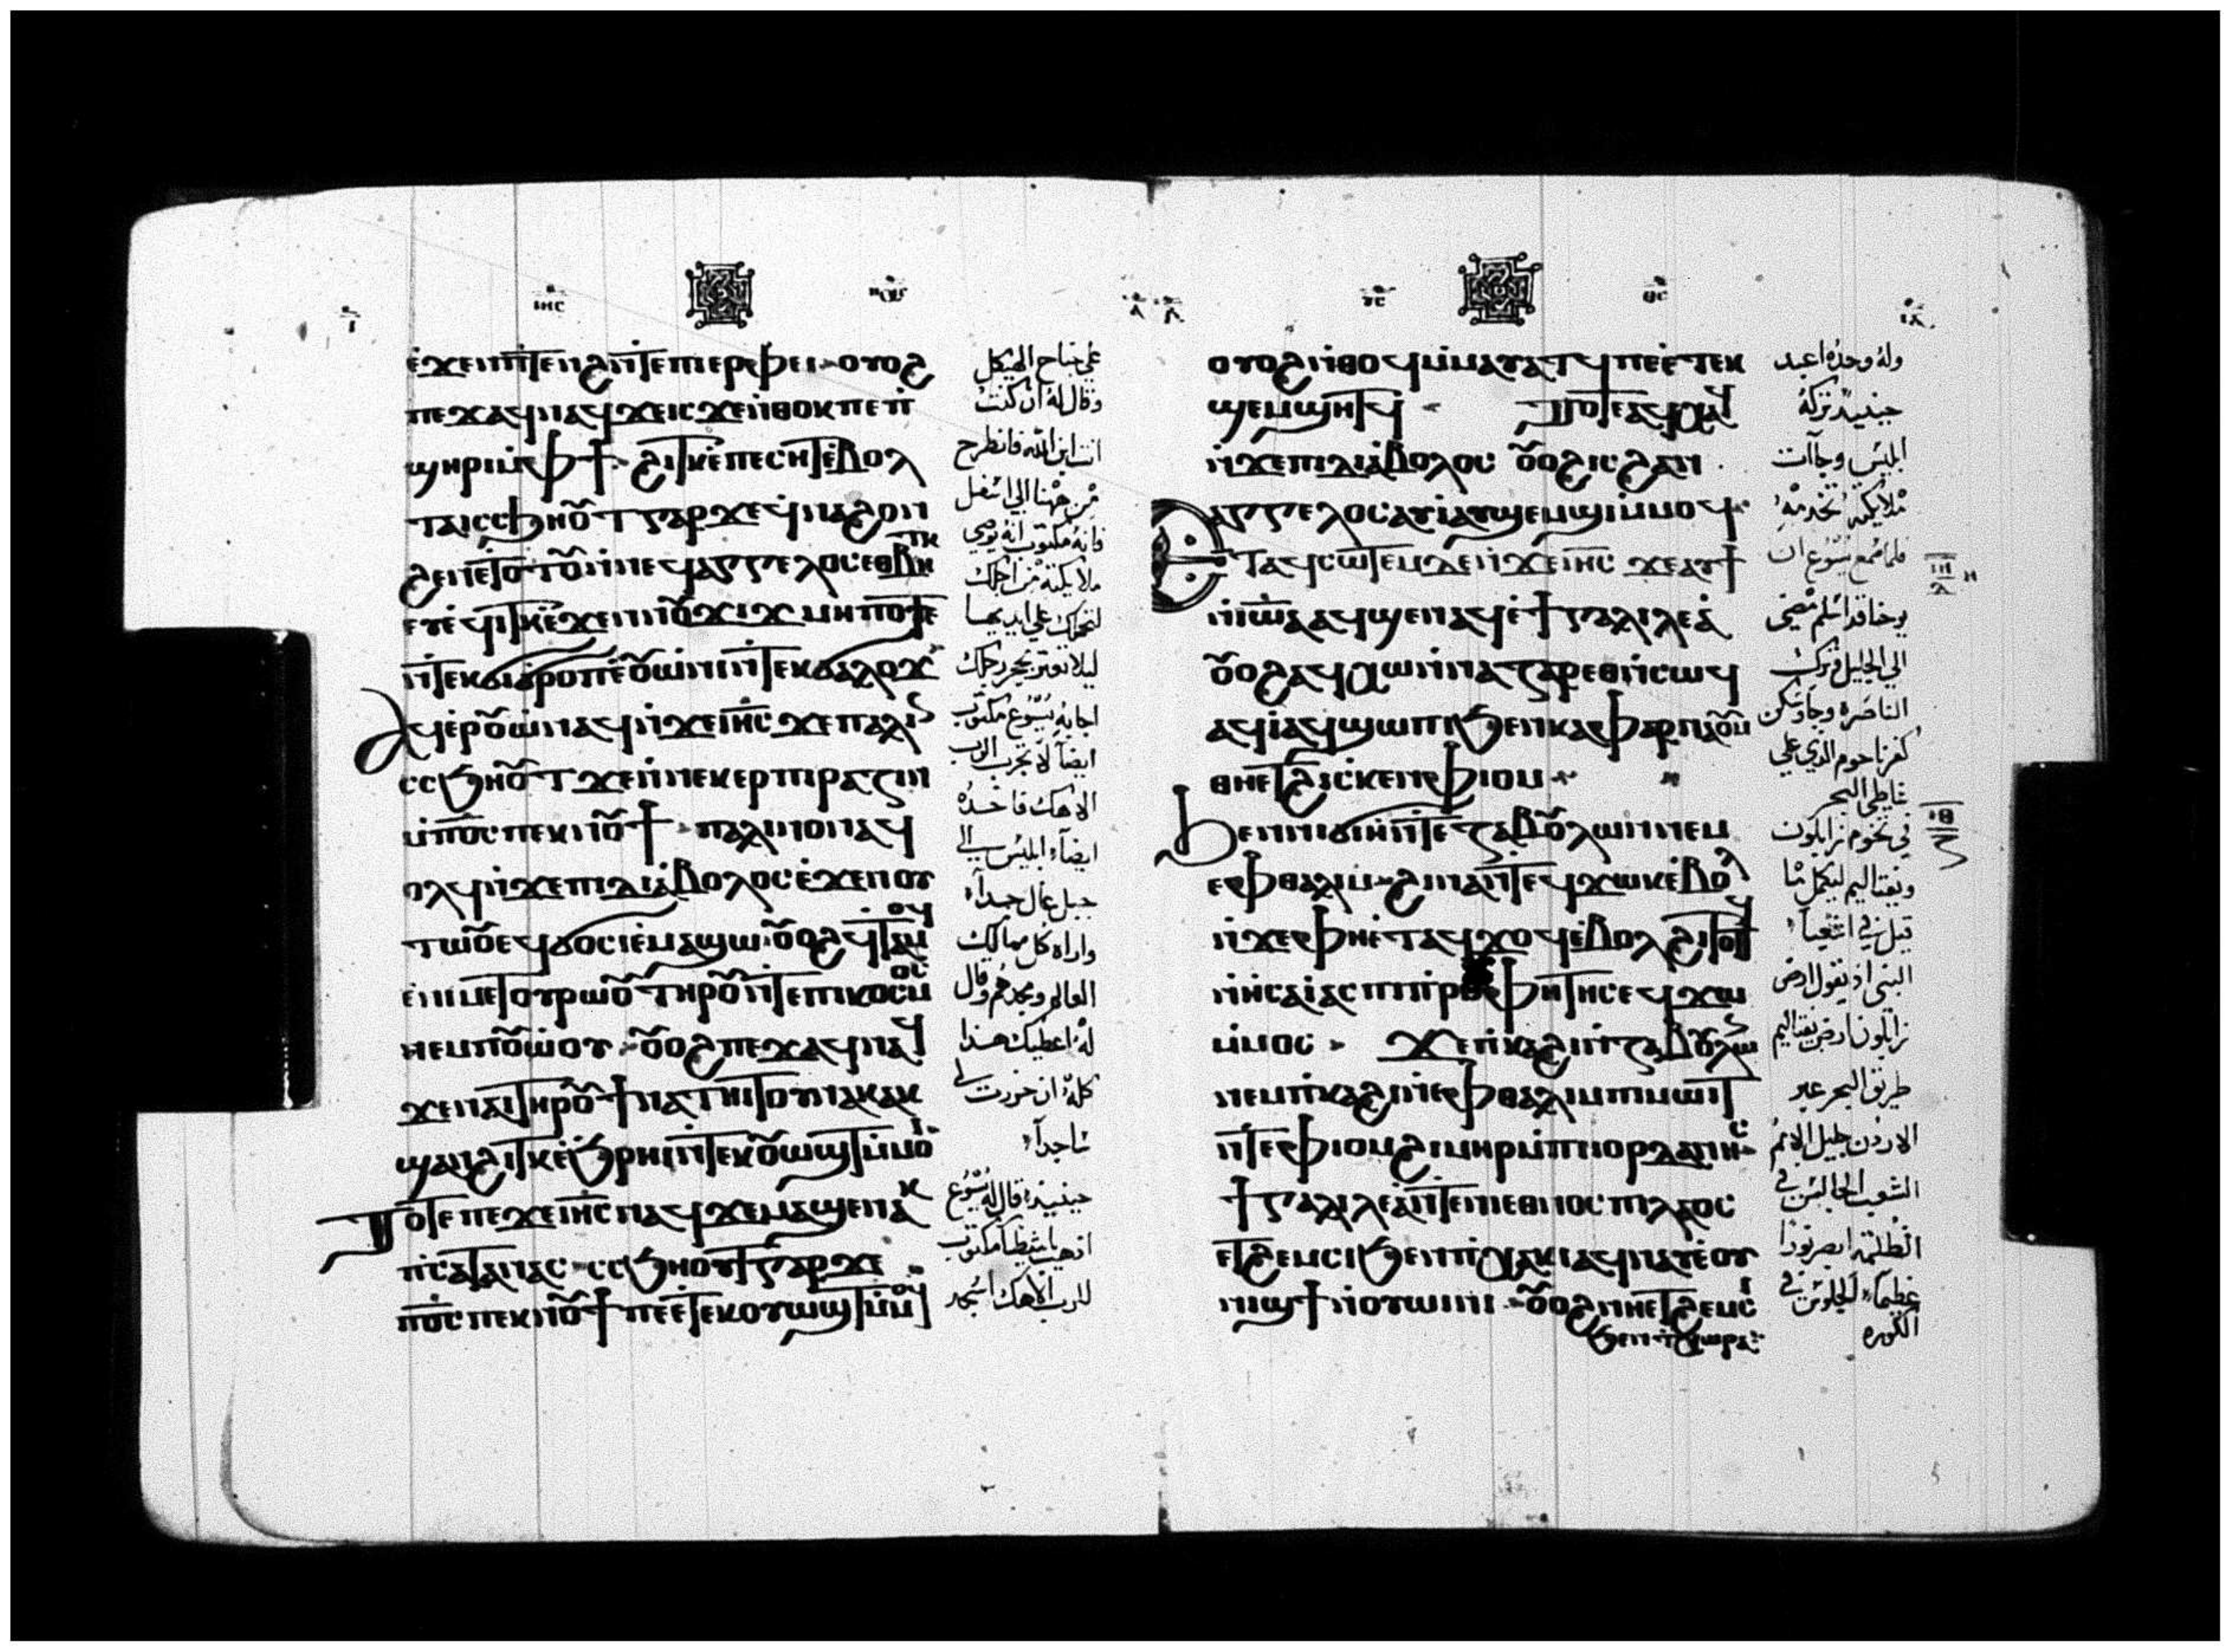 ⲓⲏⲥ
ⲉ̀ϫⲉⲛⲡ̀ⲧⲉⲛϩⲛ̀ⲧⲉⲡⲓⲉⲣⲫⲉⲓ ⲟⲩⲟϩ
ⲡⲉϫⲁϥⲛⲁϥϫⲉⲓⲥϫⲉⲛ̀ⲑⲟⲕⲡⲉⲡ̀
ϣⲏⲣⲓⲙ̀ⲫϯ ϩⲓⲧⲕⲉ̀ⲡⲉⲥⲏⲧⲉ̀ⲃⲟⲗ
ⲧⲁⲓⲥⲥϧⲏⲟ̅ⲧⲅⲁⲣϫⲉϥ̀ⲛⲁϩⲟⲛ
ϩⲉⲛⲉⲧⲟⲧⲟ̅ⲛ̀ⲛⲉϥⲁⲅⲅⲉⲗⲟⲥⲉⲑⲃⲏⲧⲕ
ⲉⲩⲉ̀ϥⲓⲧⲕⲉ̀ϫⲉⲛⲛⲟ̅ϫⲓϫ ⲙⲏⲡⲟⲧⲉ
ⲛ̀ⲧⲉⲕϭⲓϭⲣⲟⲡⲉ̀ⲟ̅ⲱ̀ⲛⲓⲛ̀ⲧⲉⲕϭⲁⲗⲟϫ
ⲁϥⲉⲣⲟ̅ⲱ̀ⲛⲁϥⲛ̀ϫⲉⲓⲏⲥ ϫⲉⲡⲁⲗⲓⲛ
ⲥⲥϧⲏⲟ̅ⲧϫⲉⲛ̀ⲛⲉⲕⲉⲣⲡⲓⲣⲁⲍⲓⲛ
ⲙ̀ⲡⲟ̅ⲥⲡⲉⲕⲛⲟ̅ϯ ⲡⲁⲗⲓⲛⲟⲛⲁϥ
ⲟⲗϥⲛ̀ϫⲉⲡⲓⲇⲓⲁ̀ⲃⲟⲗⲟⲥⲉ̀ϫⲉⲛⲟⲩ
ⲧⲱⲟ̅ⲉϥϭⲟⲥⲓⲉ̀ⲙⲁϣⲱ ⲟ̅ⲟϩϥⲧⲁⲙⲟϥ
ⲉ̀ⲛⲓⲙⲉⲧⲟⲩⲣⲱⲟ̅ⲧⲏⲣⲟ̅ⲛ̀ⲧⲉⲡⲓⲕⲟⲥⲙⲟⲥ
ⲛⲉⲙⲡⲟ̅ⲱ̀ⲟⲩ ⲟ̅ⲟϩⲡⲉϫⲁϥⲛⲁϥ
ϫⲉⲛⲁⲓⲧⲏⲣⲟ̅ϯⲛⲁⲧⲏⲓⲧⲟⲩⲛⲁⲕⲁⲕ
ϣⲁⲛϩⲓⲧⲕⲉ̀ϧⲣⲏⲓⲛ̀ⲧⲉⲕⲟ̅ⲱϣⲧⲙ̀ⲙⲟⲓ
ⲧⲟⲧⲉⲡⲉϫⲉⲓⲏⲥⲛⲁϥϫⲉⲙⲁϣⲉⲛⲁⲕ
ⲡⲥⲁⲧⲁⲛⲁⲥ ⲥⲥϧⲏⲟⲩⲧⲅⲁⲣϫⲉ
ⲡⲟ̅ⲥⲡⲉⲕⲛⲟ̅ϯⲡⲉⲉ̀ⲧⲉⲕⲟⲩⲱϣⲧⲙ̀ⲙⲟϥ
على جناح الهيكل
وقال له ان كنت
انت ابن الله فانطرح
من ههنا الي اسفل
فانه مكتوب انه يوصي
ملايكته من اجلك
لتحملك علي ايديها
ليلا تعتر بحجر رجلك
اجابه يسوع مكتوب
ايضا لا تجرب الرب
الاهك فاخده
ايضا ابليس الي
جبل عال جدا
واراه كل ممالك
العالم ومجدهم وقال
له اعطيك هدا
كله ان خررت لي
ساجدا
حينيد قال له يسوع
اذهب يا شيطان مكتوب
للرب الاهك اسجد
ⲩⲥ ⲑⲥ
ⲟⲩⲟϩⲛ̀ⲑⲟϥⲙ̀ⲙⲁⲩⲁⲧϥⲡⲉⲉ̀ⲧⲉⲕ
ϣⲉⲙϣⲏⲧϥ ⲧⲟⲧⲉⲁϥⲭⲁϥ
ⲛ̀ϫⲉⲡⲓⲇⲓⲁ̀ⲃⲟⲗⲟⲥ ⲟ̅ⲟϩⲓⲥϩⲁⲛ
ⲁⲅⲅⲉⲗⲟⲥⲁⲩⲓ̀ⲁⲩϣⲉⲙϣⲓⲙ̀ⲙⲟϥ
ⲉⲧⲁϥⲥⲱⲧⲉⲙⲇⲉⲛ̀ϫⲉⲓⲏⲥ ϫⲉⲁⲩϯ
ⲛ̀ⲓⲱⲁⲁϥϣⲉⲛⲁϥⲉ̀ϯⲅⲁⲗⲓⲗⲉⲁ̀
ⲟ̅ⲟϩⲁϥⲭⲱⲛ̀ⲛⲁⲍⲁⲣⲉⲑⲛ̀ⲥⲱϥ
ⲁϥⲓ̀ⲁϥϣⲱⲡⲓϧⲉⲛⲕⲁⲫⲁⲣⲛⲁⲟⲩⲙ
ⲑⲏⲉⲧϩⲓⲥⲕⲉⲛⲫⲓⲟⲙ
ϧⲉⲛⲛⲓϭⲓⲏ̀ⲛ̀ⲧⲉⲍⲁⲃⲟ̅ⲗⲱⲛⲛⲉⲙ
ⲉⲫⲑⲁⲗⲓⲙ ϩⲓⲛⲁⲛ̀ⲧⲉϥϫⲱⲕⲉ̀ⲃⲟⲗ
ⲛ̀ϫⲉⲫⲏⲉ̀ⲧⲁϥϫⲟϥⲉ̀ⲃⲟⲗϩⲓⲧⲟⲧϥ
ⲛ̀ⲏ̀ⲥⲁⲓ̀ⲁⲥⲡⲓⲡ̀ⲣⲟⲫⲏⲧⲏⲥⲉϥϫⲱ
ⲙ̀ⲙⲟⲥ ϫⲉⲡ̀ⲕⲁϩⲓⲛ̀ⲍⲁⲃⲟⲩⲗⲱⲛ
ⲛⲉⲙⲡ̀ⲕⲁϩⲓⲛ̀ⲉⲫⲑⲁⲗⲓⲙⲡⲓⲙⲱⲓⲧ
ⲛ̀ⲧⲉⲫⲓⲟⲙϩⲓⲙⲏⲣⲙ̀ⲡⲓⲓⲟⲣⲇⲁⲛⲏⲥ
ϯⲅⲁⲗⲓⲗⲉⲁ̀ⲛ̀ⲧⲉⲛⲓⲉⲑⲛⲟⲥⲡⲓⲗⲁⲟⲥ
ⲉⲧϩⲉⲙⲥⲓϧⲉⲛⲡ̀ⲭⲁⲕⲓⲁϥⲛⲁⲩⲉ̀ⲟⲩ
ⲛⲓϣϯⲛ̀ⲟⲩⲱⲓⲛⲓ ⲟ̅ⲟϩⲛⲏⲉⲧϩⲉⲙⲥⲓ
ϧⲉⲛⲧⲭⲱⲣⲁ
وله وحده اعبد
حينيد تركه
ابليس وجاات
ملايكه تخدمه
فلما سمع يسوع ان
يوحنا قد اسلم مضي
الي الجليل وترك
الناصره وجا وسكن
كفرناحوم الدي علي
شاطي البحر
في تخوم زابلون
ونفتاليم ليكمل ما
قيل في اشعيا
النبي اذ يقول ارض
زابلون ارض نفتاليم
طريق البحر عبر
الاردن جليل الامم
الشعب الجالس في
الظلمه ابصر نورا
عظيما الجلوس في
الكوره